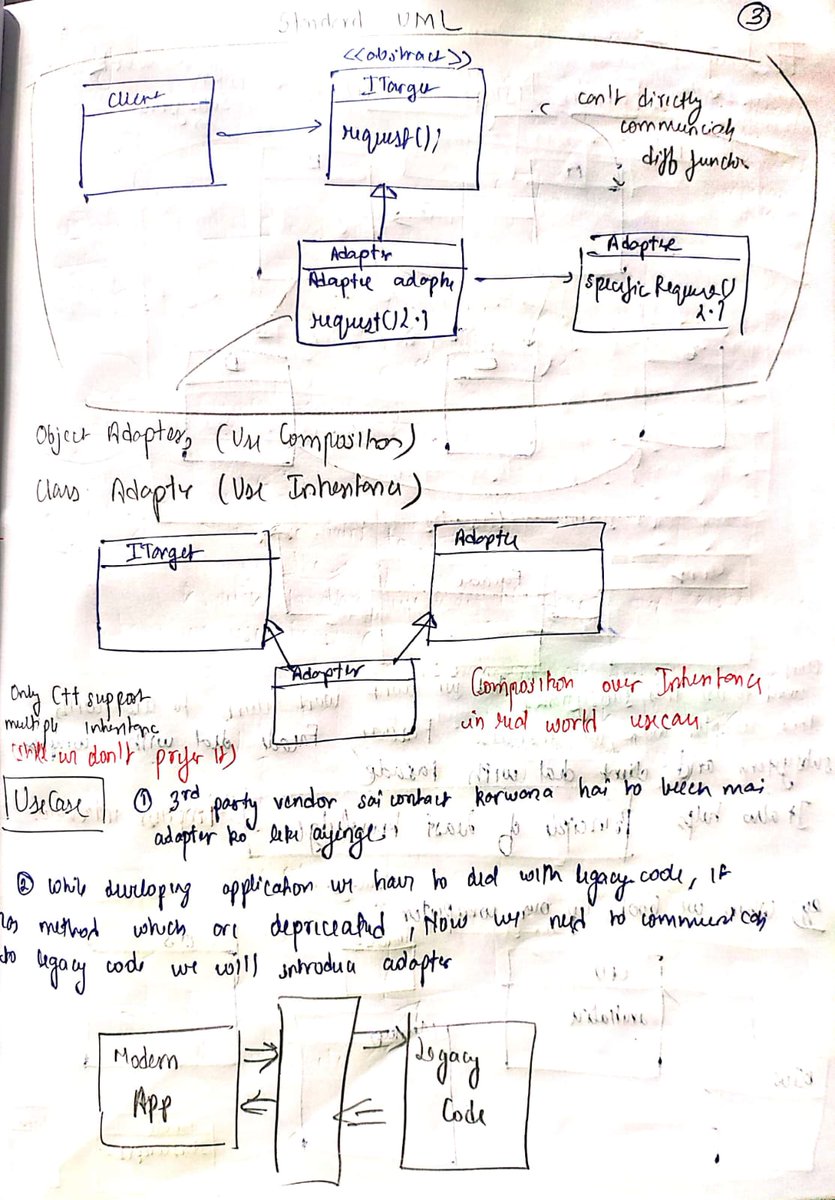 Standard UML
3
<<abstract>>
Client
ITarget
request();
can't directly
communciate
diff function
Adapter
Adaptee adapte
request(){.}
Adaptee
specificRequest()
{.}
Object Adapter, (Use Composition)
Class Adapter (Use Inheritance)
ITarget
Adaptee
Adapter
Only C++ support
multiple inheritance
(still we don't prefer it)
Composition over Inheritance
in real world usecase
UseCase
① 3rd party vendor sai contact karwana hai to beech mai
adapter ko leke ayenge.
② While developing application we have to deal with legacy code, if
has method which are depriceated, Now we need to communicate
to legacy code we will introduce adapter
Modern
App
Legacy
Code